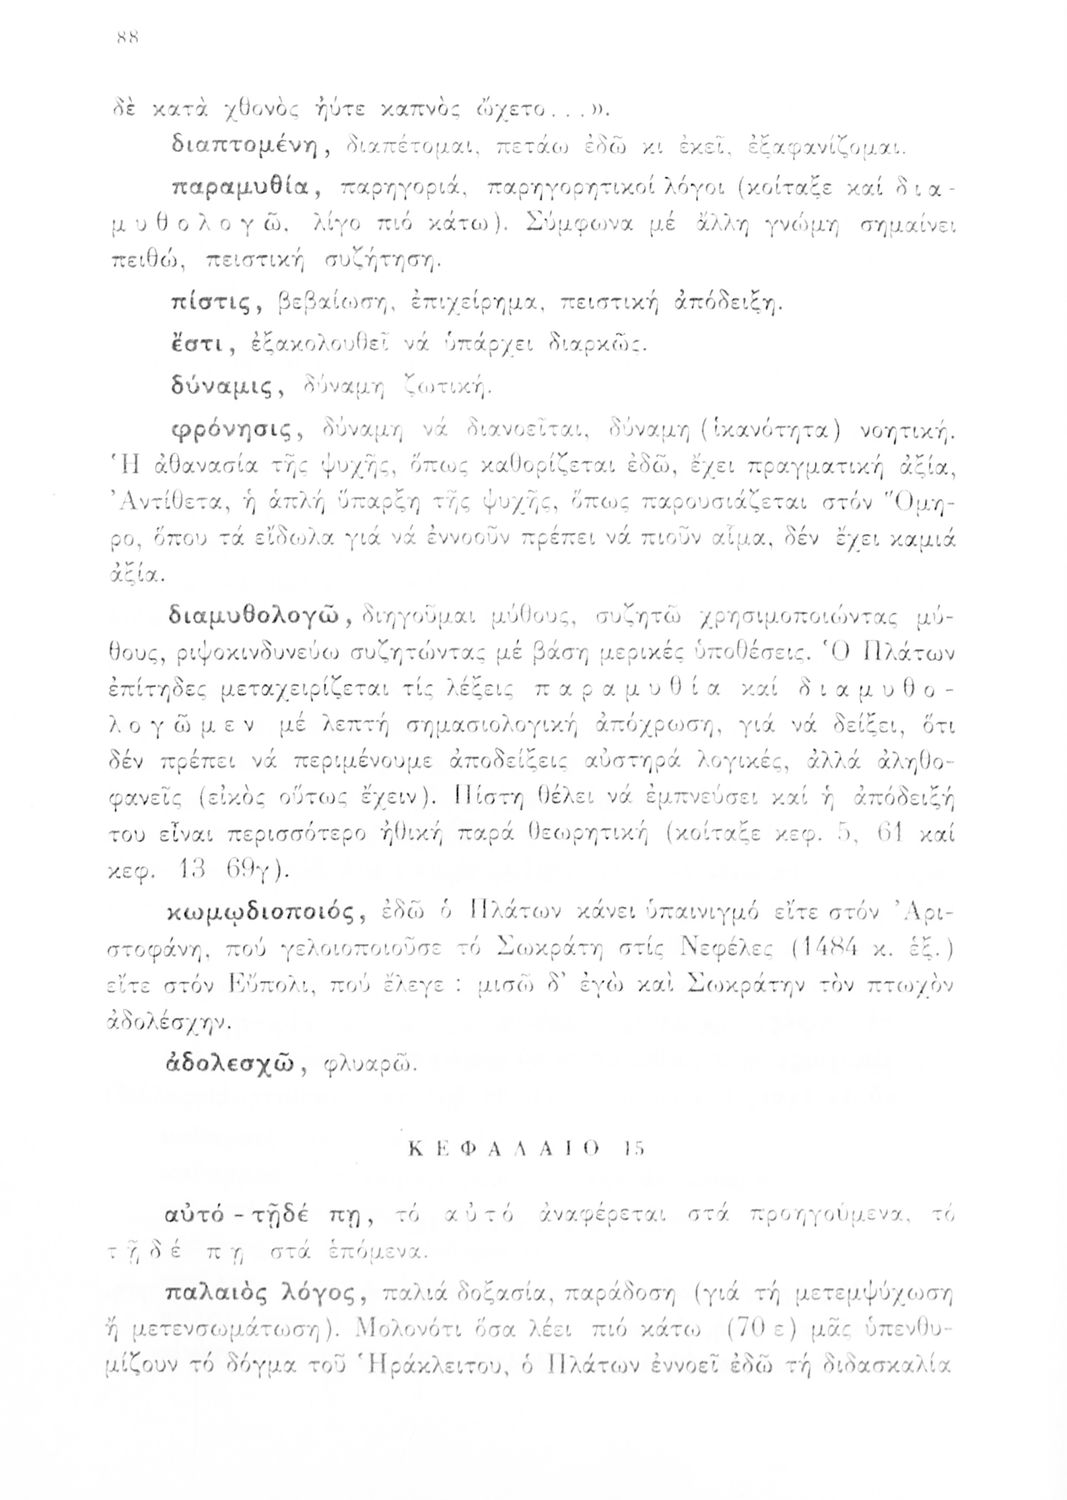 88
δὲ κατὰ χθονὸς ἠύτε καπνὸς ᾤχετο. . .».
διαπτομένη, διαπέτομαι, πετάω ἐδῶ κι ἐκεῖ, ἐξαφανίζομαι.
παραμυθία, παρηγοριά, παρηγορητικοί λόγοι (κοίταξε καί δ ι α -
μ υ θ ο λ ο γ ῶ, λίγο πιό κάτω). Σύμφωνα μέ ἄλλη γνώμη σημαίνει
πειθώ, πειστική συζήτηση.
πίστις, βεβαίωση, ἐπιχείρημα, πειστική ἀπόδειξη.
ἔστι, ἐξακολουθεῖ νά ὑπάρχει διαρκῶς.
δύναμις, δύναμη ζωτική.
φρόνησις, δύναμη νά διανοεῖται, δύναμη (ἱκανότητα) νοητική.
Ἡ ἀθανασία τῆς ψυχῆς, ὅπως καθορίζεται ἐδῶ, ἔχει πραγματική ἀξία,
Ἀντίθετα, ἡ ἁπλή ὕπαρξη τῆς ψυχῆς, ὅπως παρουσιάζεται στόν Ὅμη-
ρο, ὅπου τά εἴδωλα γιά νά ἐννοοῦν πρέπει νά πιοῦν αἷμα, δέν ἔχει καμιά
ἀξία.
διαμυθολογῶ, διηγοῦμαι μύθους, συζητῶ χρησιμοποιώντας μύ-
θους, ριψοκινδυνεύω συζητώντας μέ βάση μερικές ὑποθέσεις. Ὁ Πλάτων
ἐπίτηδες μεταχειρίζεται τίς λέξεις π α ρ α μ υ θ ί α καί δ ι α μ υ θ ο -
λ ο γ ῶ μ ε ν μέ λεπτή σημασιολογική ἀπόχρωση, γιά νά δείξει, ὅτι
δέν πρέπει νά περιμένουμε ἀποδείξεις αὐστηρά λογικές, ἀλλά ἀληθο-
φανεῖς (εἰκὸς οὕτως ἔχειν). Πίστη θέλει νά ἐμπνεύσει καί ἡ ἀπόδειξή
του εἶναι περισσότερο ἠθική παρά θεωρητική (κοίταξε κεφ. 5, 61 καί
κεφ. 13 69γ).
κωμῳδιοποιός, ἐδῶ ὁ Πλάτων κάνει ὑπαινιγμό εἴτε στόν Ἀρι-
στοφάνη, πού γελοιοποιοῦσε τό Σωκράτη στίς Νεφέλες (1484 κ. ἑξ.)
εἴτε στόν Εὔπολι, πού ἔλεγε : μισῶ δ’ ἐγὼ καὶ Σωκράτην τὸν πτωχὸν
ἀδολέσχην.
ἀδολεσχῶ, φλυαρῶ.
Κ Ε Φ Α Λ Α Ι Ο 15
αὐτό - τῇδέ πῃ, τό α ὐ τ ό ἀναφέρεται στά προηγούμενα, τό
τ ῇ δ έ π ῃ στά ἑπόμενα.
παλαιὸς λόγος, παλιά δοξασία, παράδοση (γιά τή μετεμψύχωση
ἤ μετενσωμάτωση). Μολονότι ὅσα λέει πιό κάτω (70 ε) μᾶς ὑπενθυ-
μίζουν τό δόγμα τοῦ Ἡράκλειτου, ὁ Πλάτων ἐννοεῖ ἐδῶ τή διδασκαλία